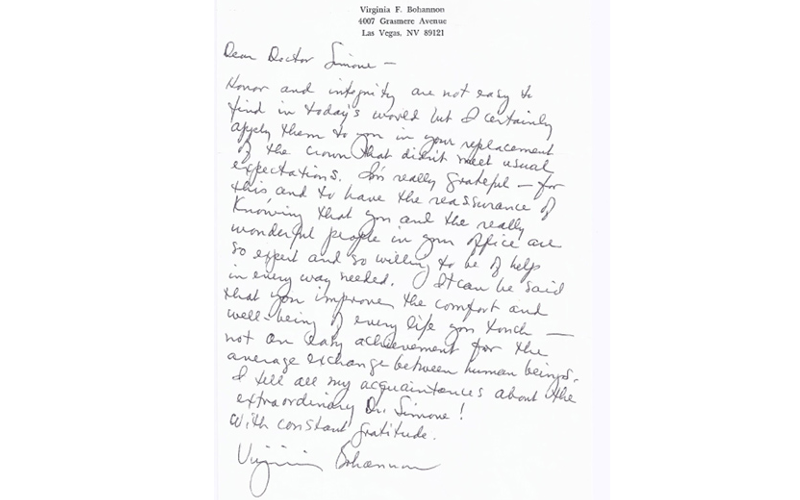 Virginia F. Bohannon
4007 Grasmere Avenue
Las Vegas, NV 89121
Dear Doctor Simone —
Honor and integrity are not easy to
find in today's world but I certainly
apply them to you in your replacement
of the crown that didn't meet usual
expectations. I'm really grateful — for
this, and to have the reassurance of
knowing that you and the really
wonderful people in your office are
so expert and so willing to be of help
in every way needed. It can be said
that you improve the comfort and
well-being of every life you touch —
not an easy achievement for the
average exchange between human beings.
I tell all my acquaintances about the
extraordinary Dr. Simone!
With constant gratitude.
Virginia Bohannon